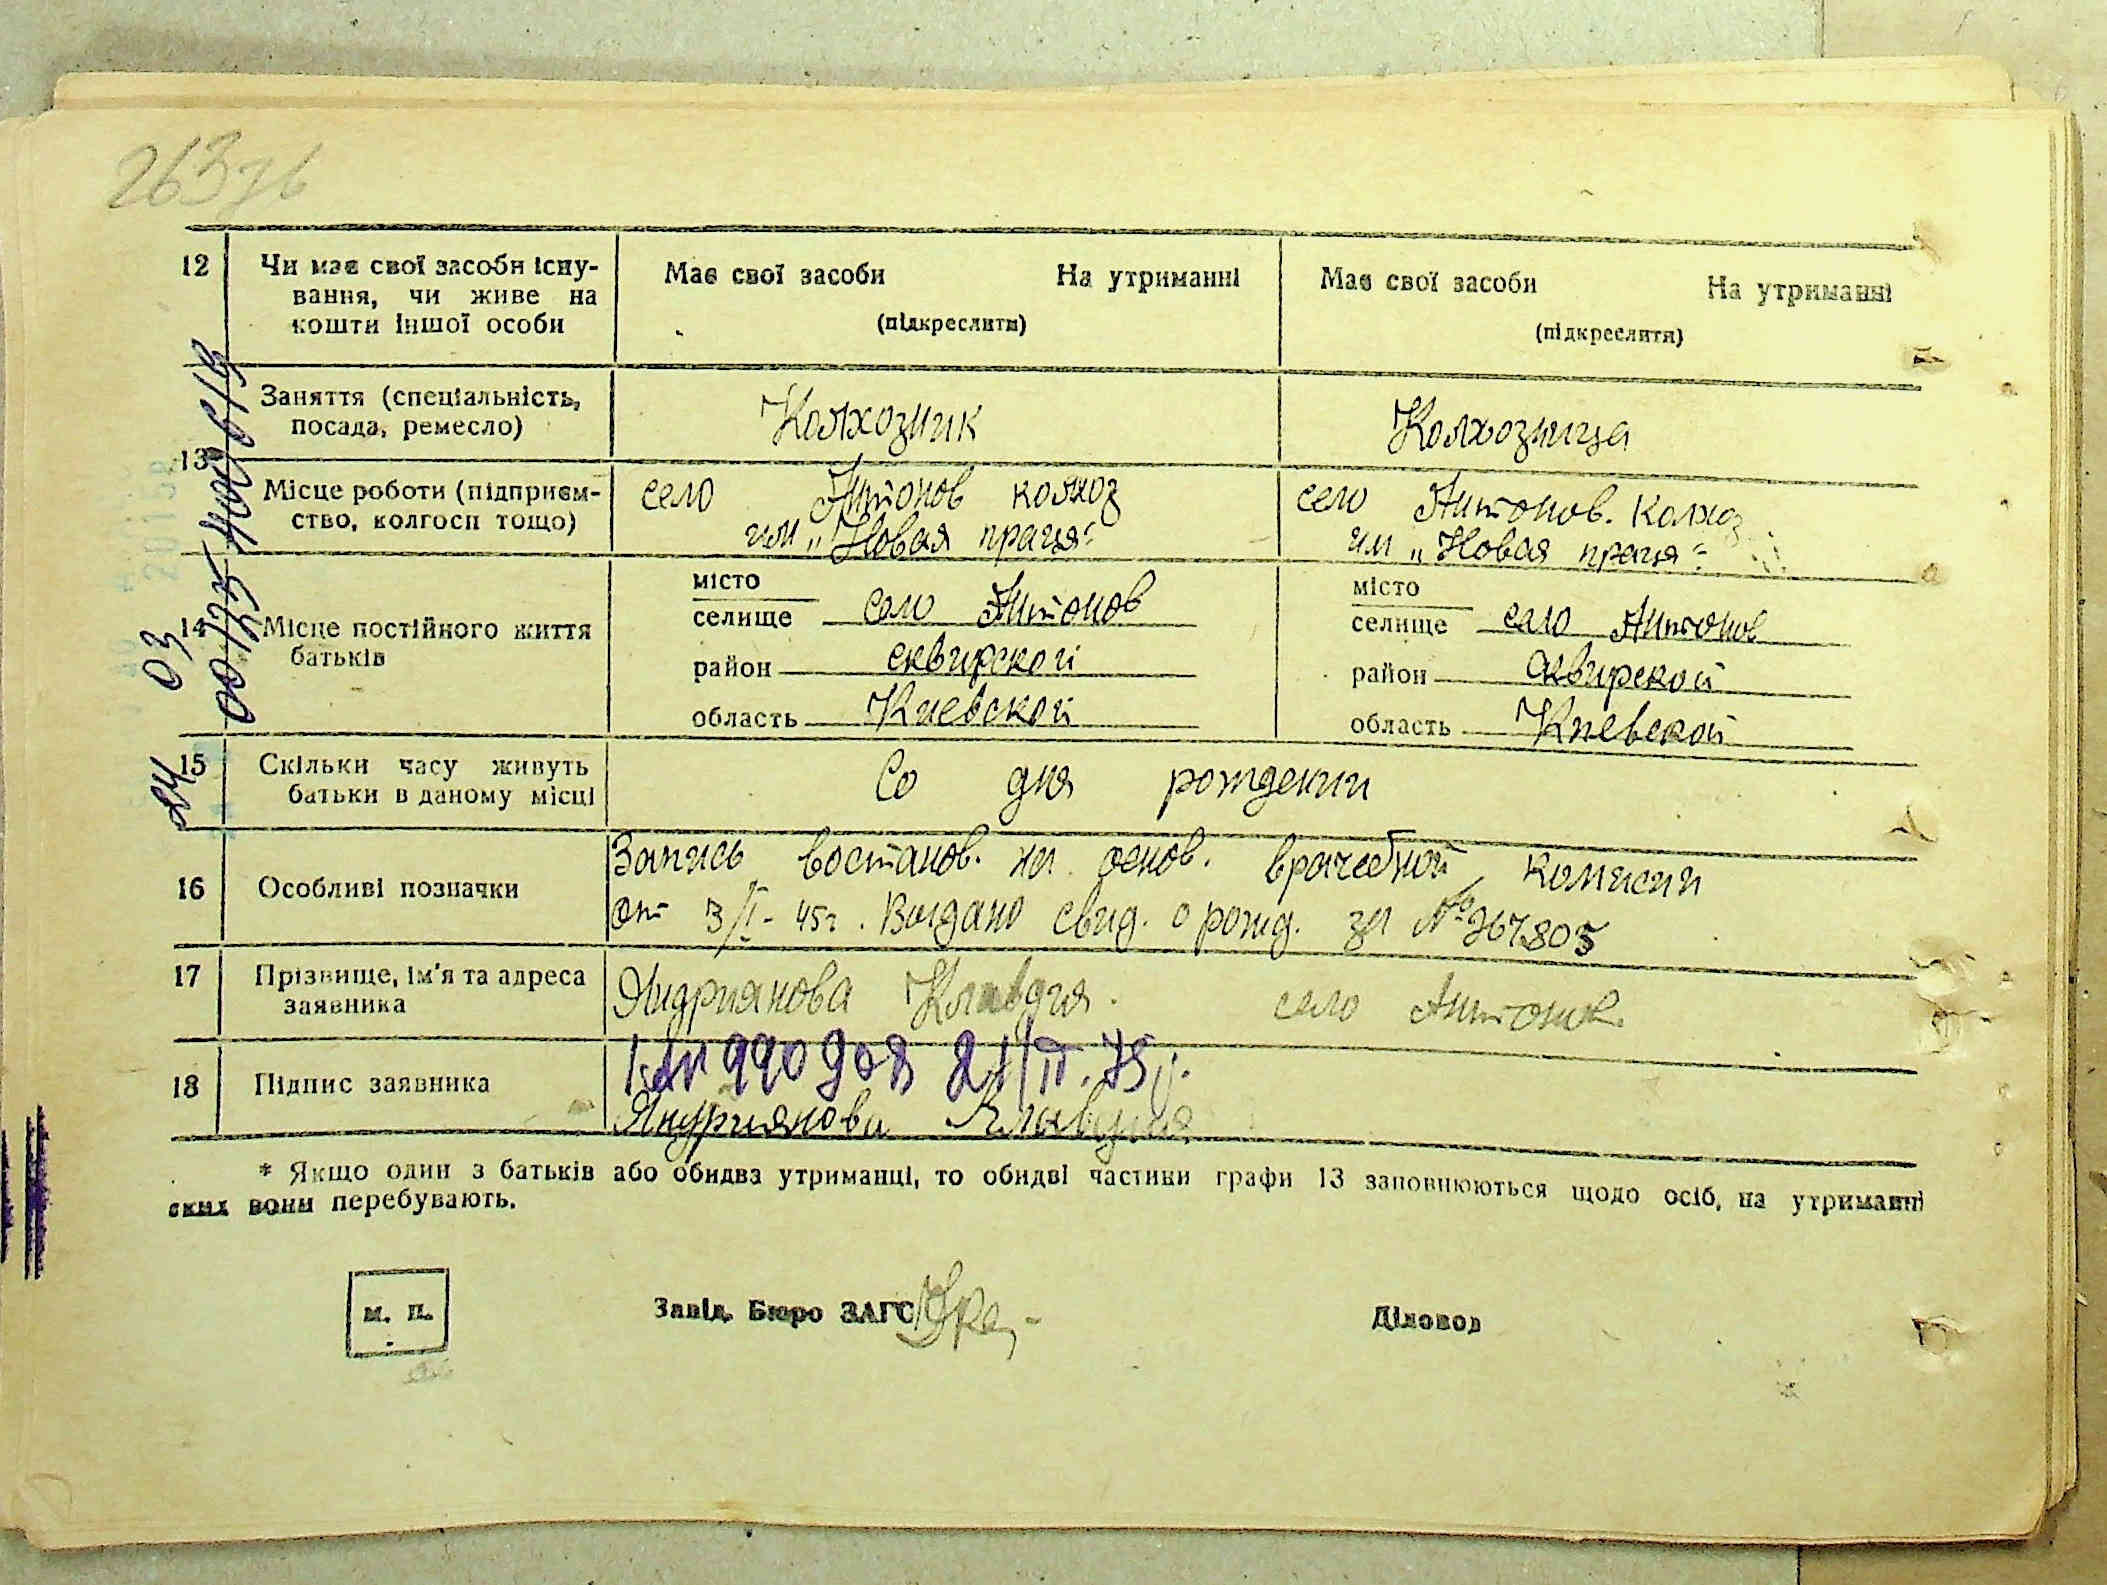 263
12 Чи має свої засоби існу-
вання, чи живе на
кошти іншої особи
Має свої засоби На утриманні
(підкреслити)
Має свої засоби На утриманні
(підкреслити)
13
Заняття (спеціальність,
посада, ремесло)
Колхозник
Колхозница
Місце роботи (підприєм-
ство, колгосп тощо)
село Антонов колхоз
им „Новая праця"
село Антонов. колхоз
им „Новая праця"
14 Місце постійного життя
батьків
місто
селище село Антонов
район сквирской
область Киевской
місто
селище село Антонов
район сквирской
область Киевской
15 Скільки часу живуть
батьки в даному місці
Со дня рождении
16 Особливі позначки
Запись востанов. на основ. врачебной комисии
от 3/I-45г. Выдано свид. о рожд. за № 267805
17 Прізвище, ім'я та адреса
заявника
Андриянова Клавдия. село Антонов
18 Підпис заявника
Андриянова Клавдия
* Якщо один з батьків або обидва утриманці, то обидві частини графи 13 заповнюються щодо осіб, на утриманні
яких вони перебувають.
м. п.
Завід. Бюро ЗАГС
Діловод
03
24